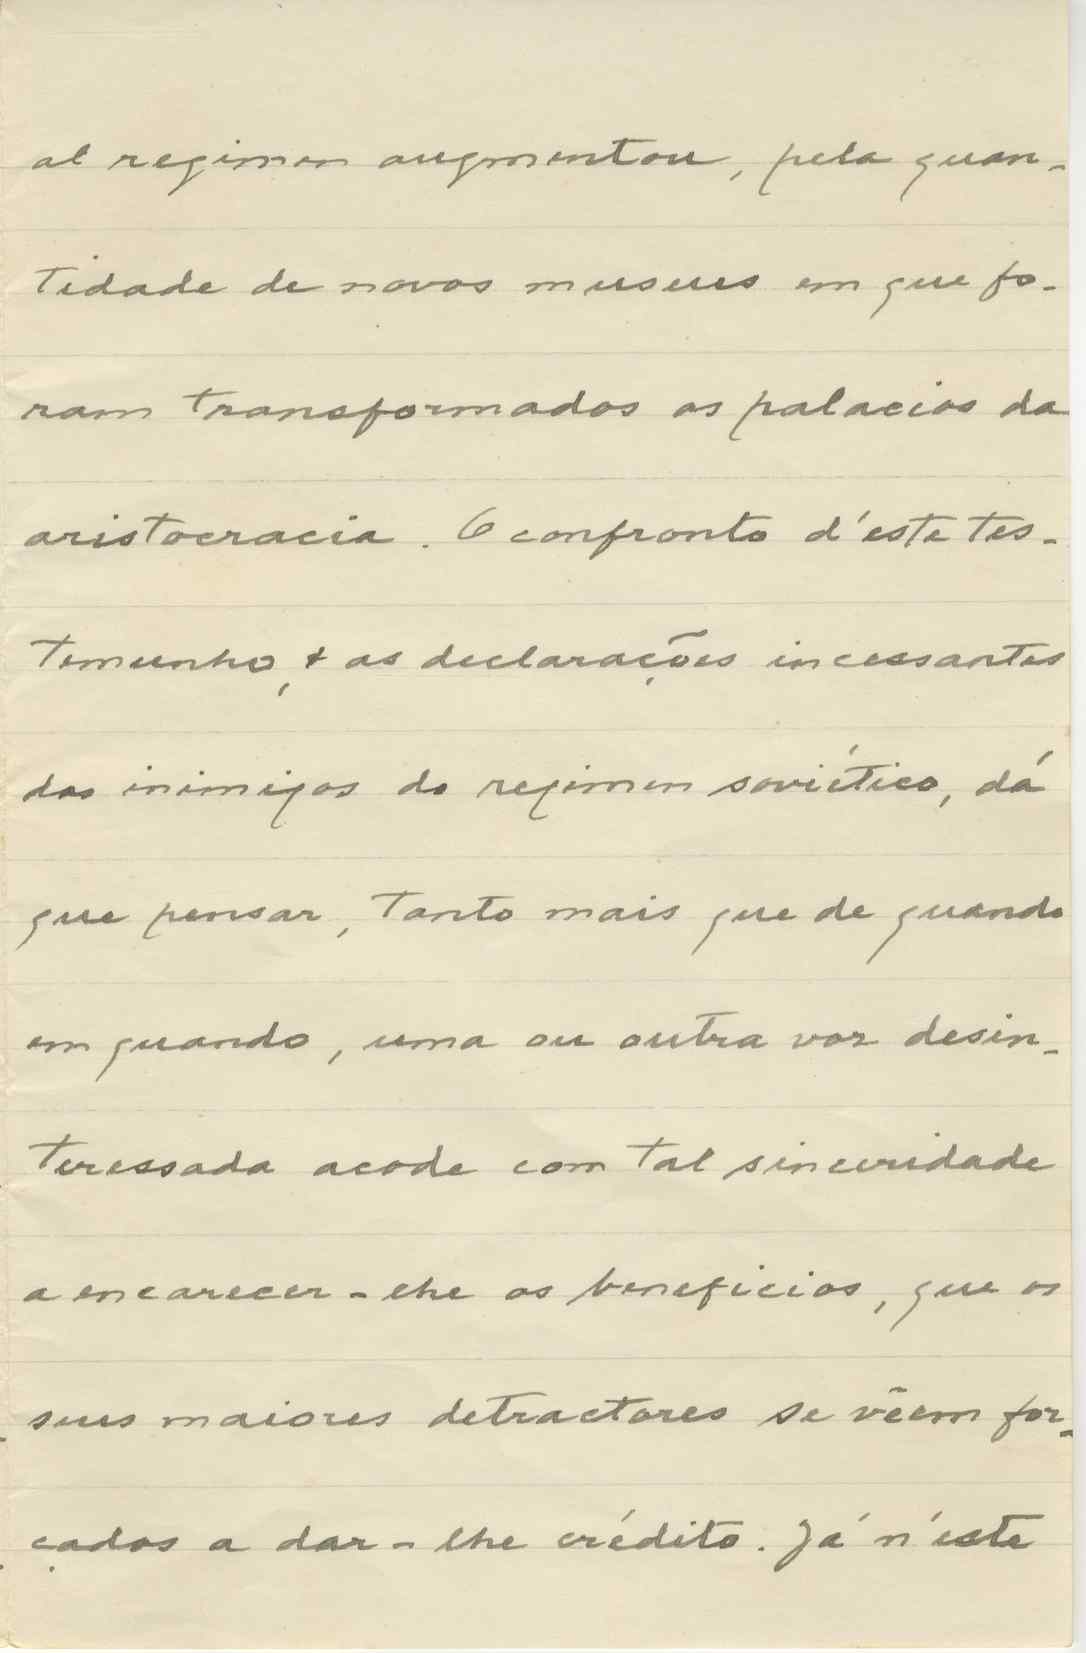 al regimen augmentou, pela quan-
tidade de novos museus em que fo-
ram transformados os palacios da
aristocracia. O confronto d'este tes-
temunho, & as declarações incessantes
dos inimigos do regimen soviético, dá
que pensar, tanto mais que de quando
em quando, uma ou outra voz desin-
teressada acode com tal sinceridade
a encarecer-lhe os beneficios, que os
seus maiores detractores se vêem for-
çados a dar-lhe crédito. Já n'este